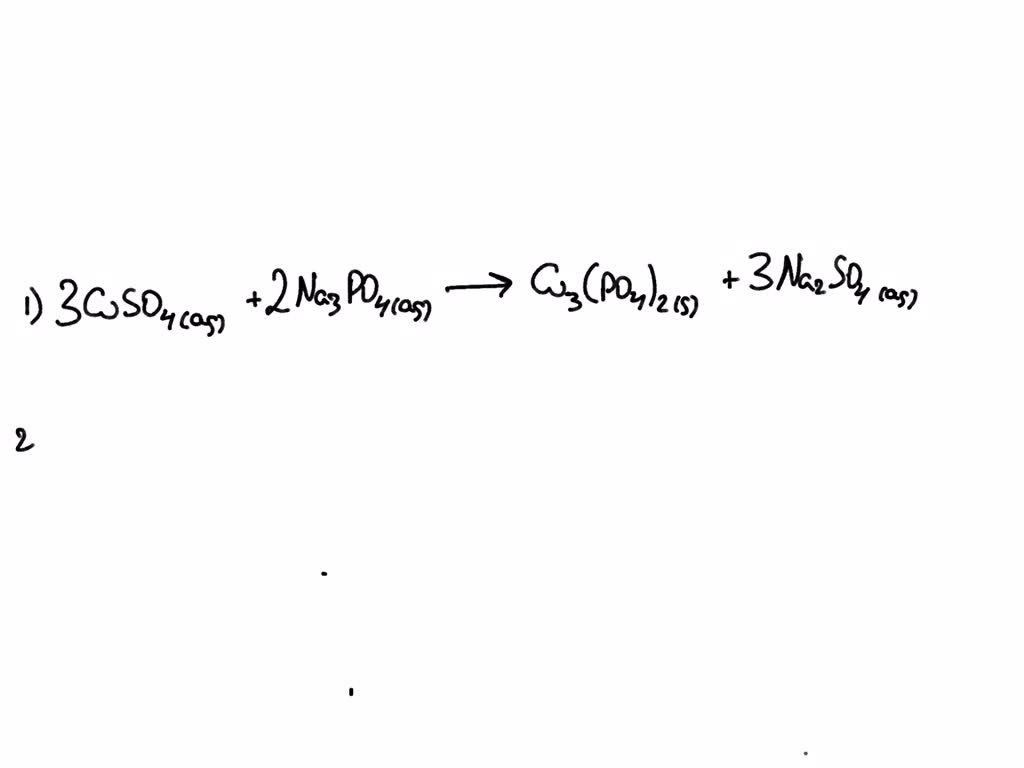 1) 3CuSO₄(aq) + 2Na₃PO₄(aq) → Cu₃(PO₄)₂(s) + 3Na₂SO₄(aq)
2